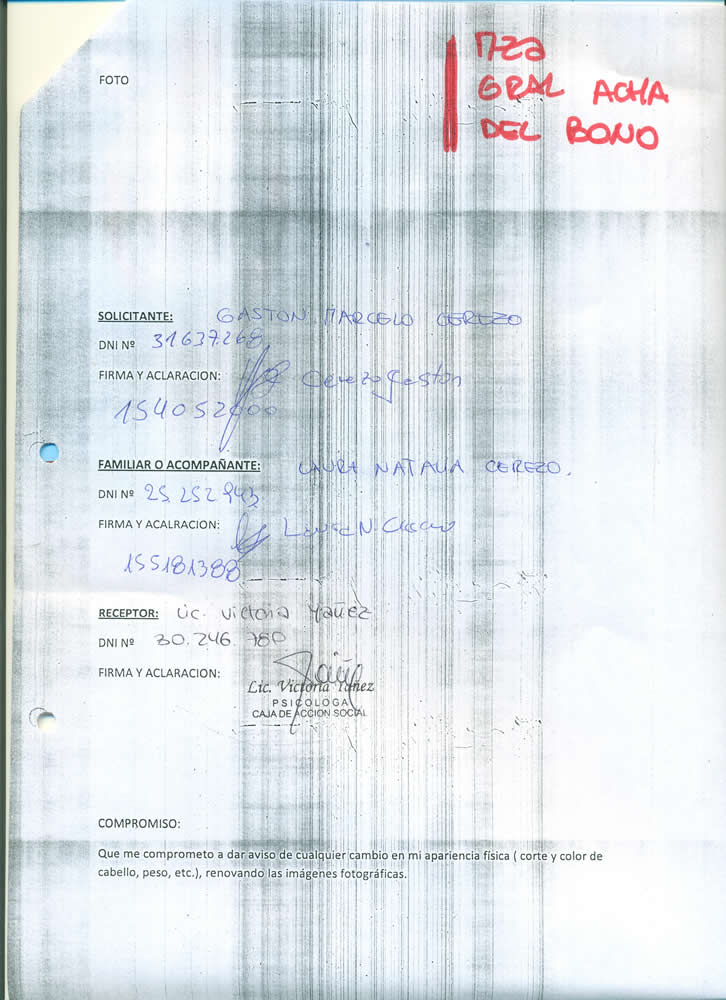 FOTO
Mza
GRAL ACHA
DEL BONO
SOLICITANTE: GASTON MARCELO CEREZO
DNI Nº 31637268
FIRMA Y ACLARACION: Cerezo Gaston
154052000
FAMILIAR O ACOMPAÑANTE: LAURA NATALIA CEREZO.
DNI Nº 25.252.943
FIRMA Y ACALRACION: Laura N. Cerezo
155181388
RECEPTOR: Lic. Victoria Yañez
DNI Nº 30.246.780
FIRMA Y ACLARACION:
Lic. Victoria Yañez
PSICOLOGA
CAJA DE ACCION SOCIAL
COMPROMISO:
Que me comprometo a dar aviso de cualquier cambio en mi apariencia física ( corte y color de
cabello, peso, etc.), renovando las imágenes fotográficas.